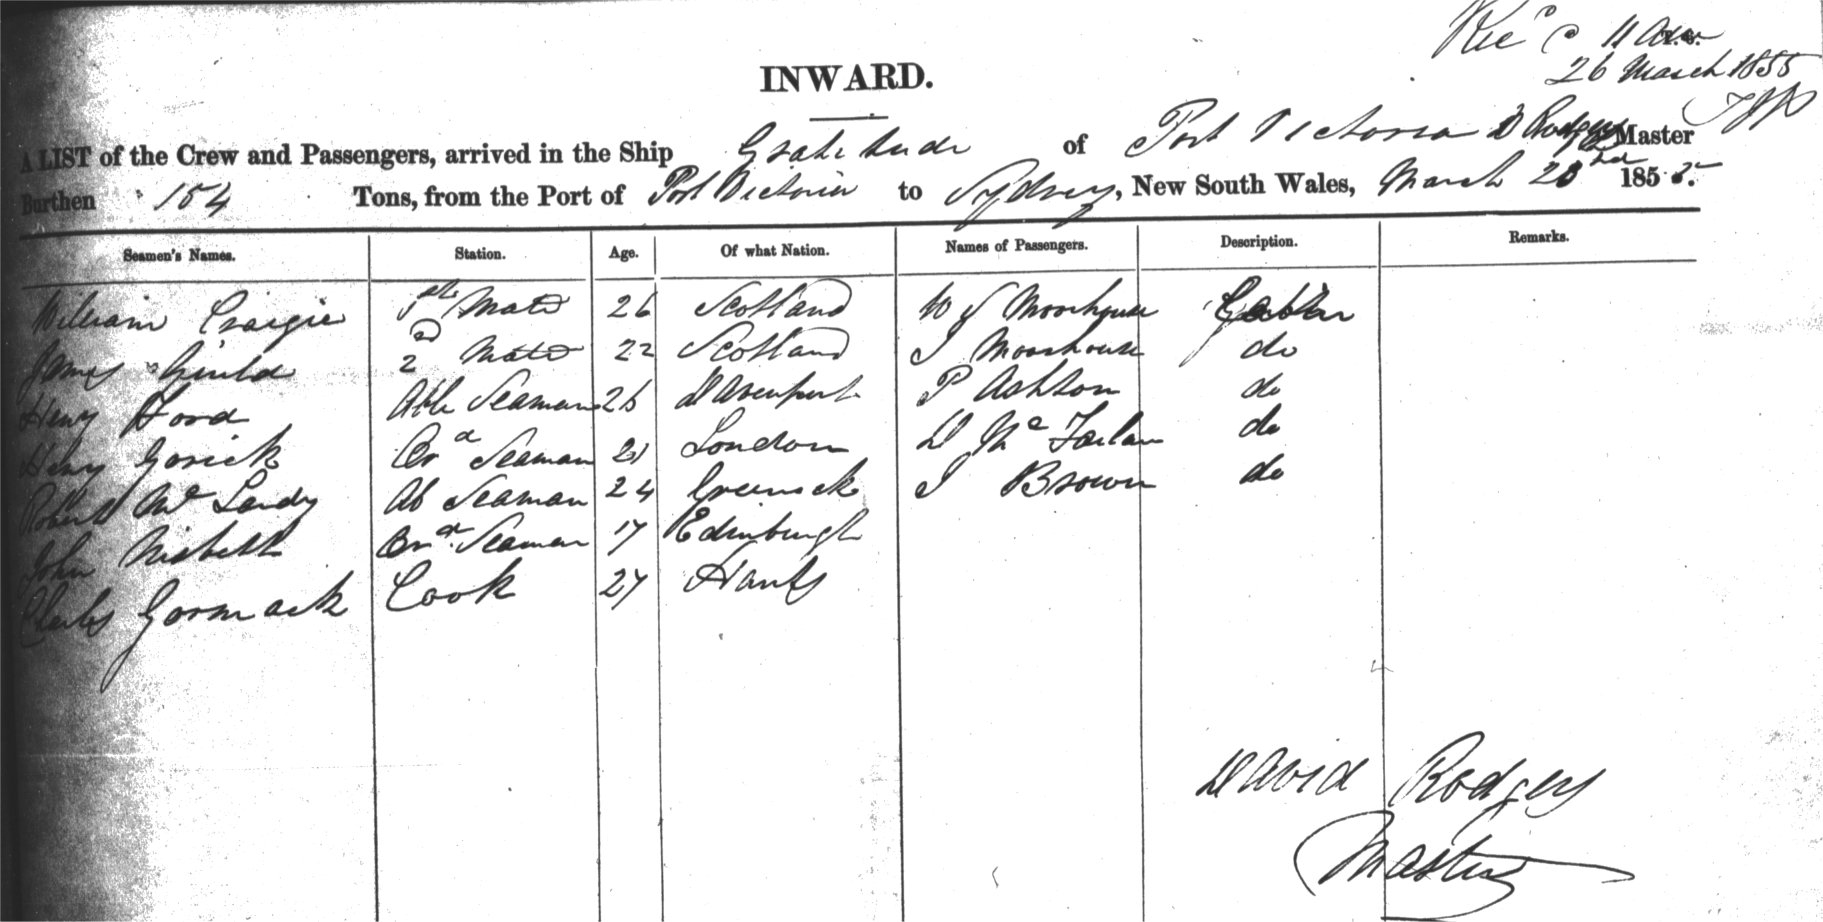 Rec^d 11 
26 March 1855
INWARD.
A LIST of the Crew and Passengers, arrived in the Ship Gratitude of Port Victoria D Rodgers Master
Burthen 154 Tons, from the Port of Port Victoria to Sydney, New South Wales, March 185 5.
Seamen's Names. Station. Age. Of what Nation. Names of Passengers. Description. Remarks.
William Craigie 1st Mate 26 Scotland W J Moorhouse Cabin
James 2d Mate 22 Scotland J Moorhouse do
Henry Ford Able Seaman 26 Davenport P Ashton do
Henry Gorick Or^d Seaman 21 London D Mc Farlan do
Robert Mc Landy Ab Seaman 24 Greenock J Brown do
John Nisbett Or^d. Seaman 17 Edinburgh
Charles Gormack Cook 27 Hants
David Rodgers
Master